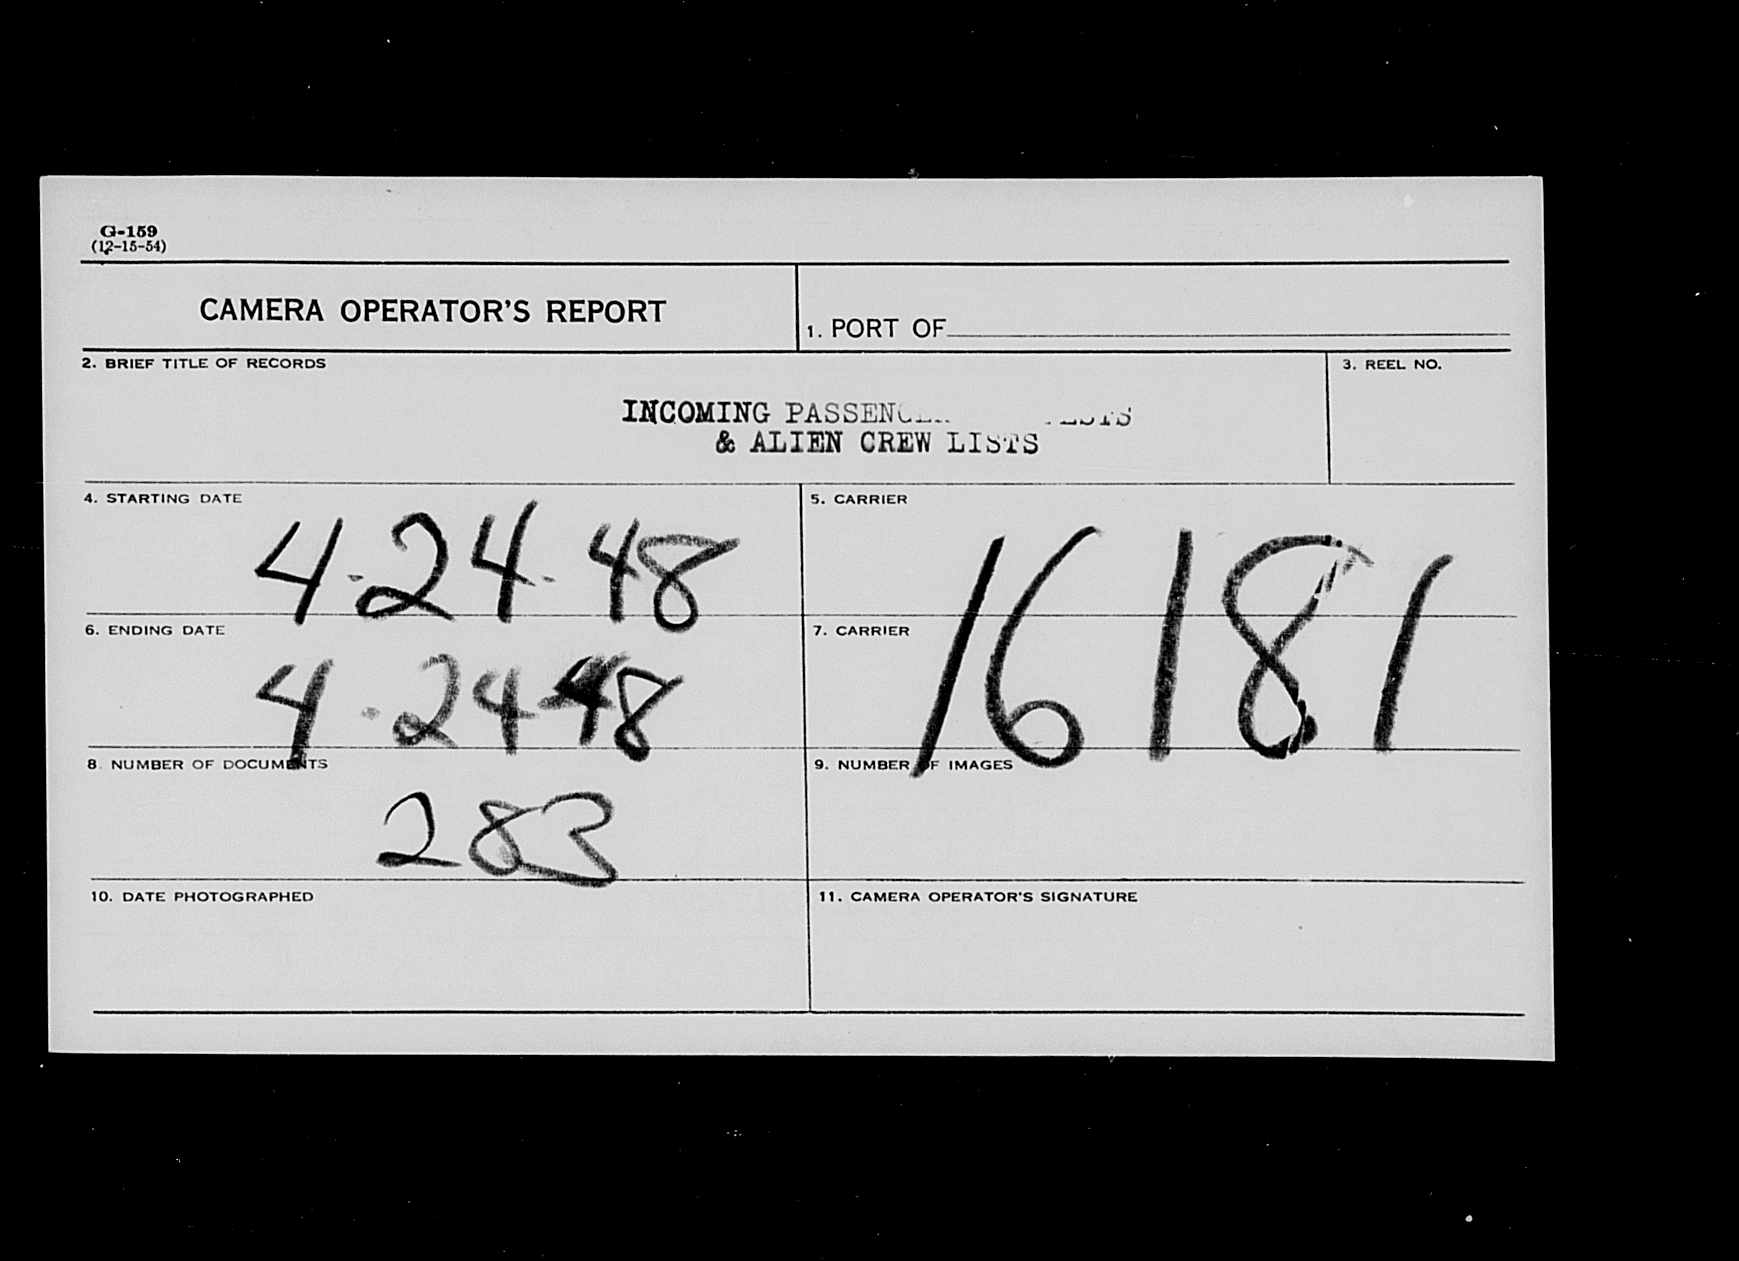 G-159
(12-15-54)
CAMERA OPERATOR'S REPORT
1. PORT OF
2. BRIEF TITLE OF RECORDS
3. REEL NO.
INCOMING
& ALIEN CREW LISTS
4. STARTING DATE
4-24-48
5. CARRIER
16181
6. ENDING DATE
4-24-48
7. CARRIER
8. NUMBER OF DOCUMENTS
283
9. NUMBER OF IMAGES
10. DATE PHOTOGRAPHED
11. CAMERA OPERATOR'S SIGNATURE